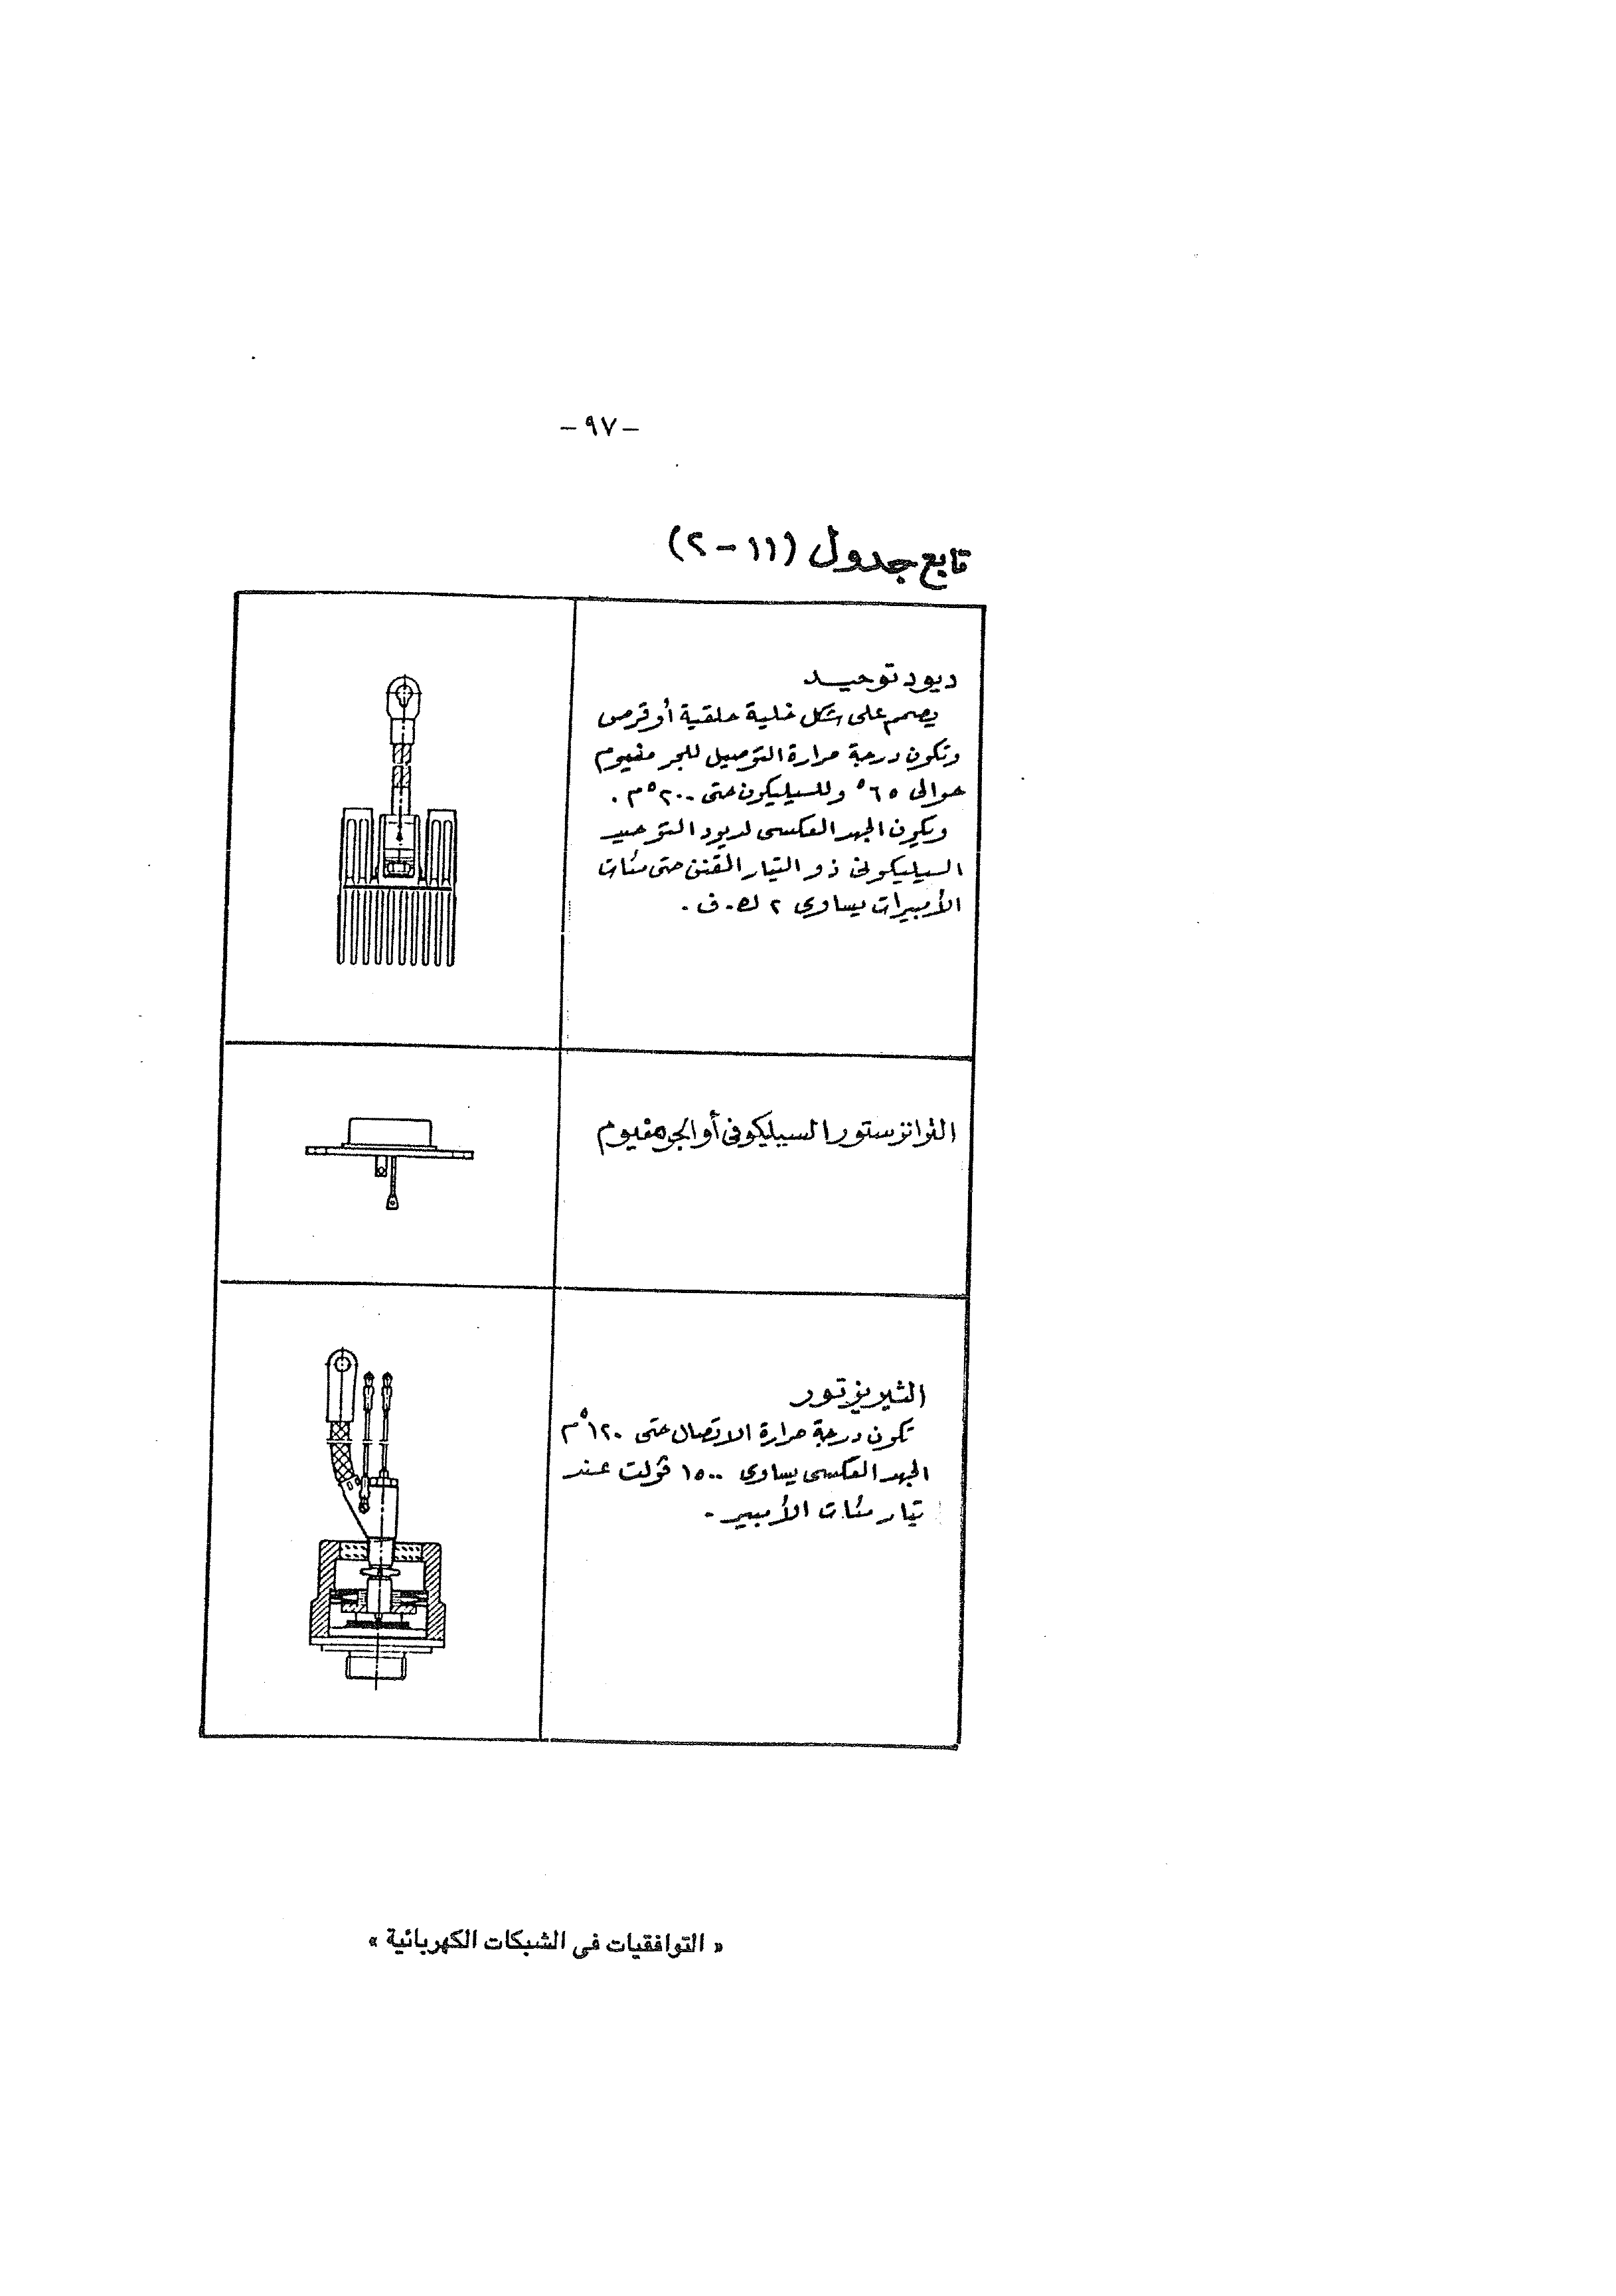 - ٩٧ -
تابع جدول (١١ - ٢)
ديود توحيد
يصمم على شكل خلية حلقية أو قرص
وتكون درجة حرارة التوصيل للجرمنيوم
حوالى ٦٥° وللسيليكون حتى ٢٠٠°م .
ويكون الجهد العكسى لديود التوحيد
السيليكونى ذو التيار المقنن حتى مئات
الأمبيرات يساوى ٢ ك . ف .
الترانزستور السيليكونى أو الجرمنيوم
الثيريزتور
تكون درجة حرارة الاتصال حتى ١٢٠°م
الجهد العكسى يساوى ١٥٠٠ ڤولت عند
تيار مئات الأمبير .
« التوافقيات فى الشبكات الكهربائية »